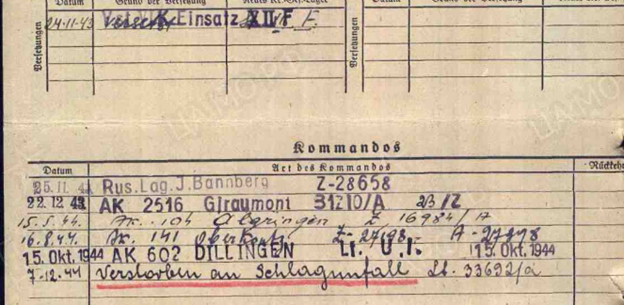 Datum Grund der Versetzung Neues Kr.-Gef.-Lager Datum Grund der Versetzung
24.11.43 Versetzt Einsatz XII F
Versetzungen
Versetzungen
Kommandos
Datum Art des Kommandos Rückkehr
25.11.43 Rus. Lag. J. Bannberg Z-28658
22.12 43 AK 2516 Giraumont 31Z10/A Z
15.5.44. Ar. 104 Algringen Z 16984/A
16.8.44. Ar. 141 Z-27198 A-27198
15. Okt. 1944 AK 602 DILLINGEN Lt. U.I. 15. Okt. 1944
7.12.44 Verstorben an Schlagunfall Lt. 33692/a
ЦАМО РФ